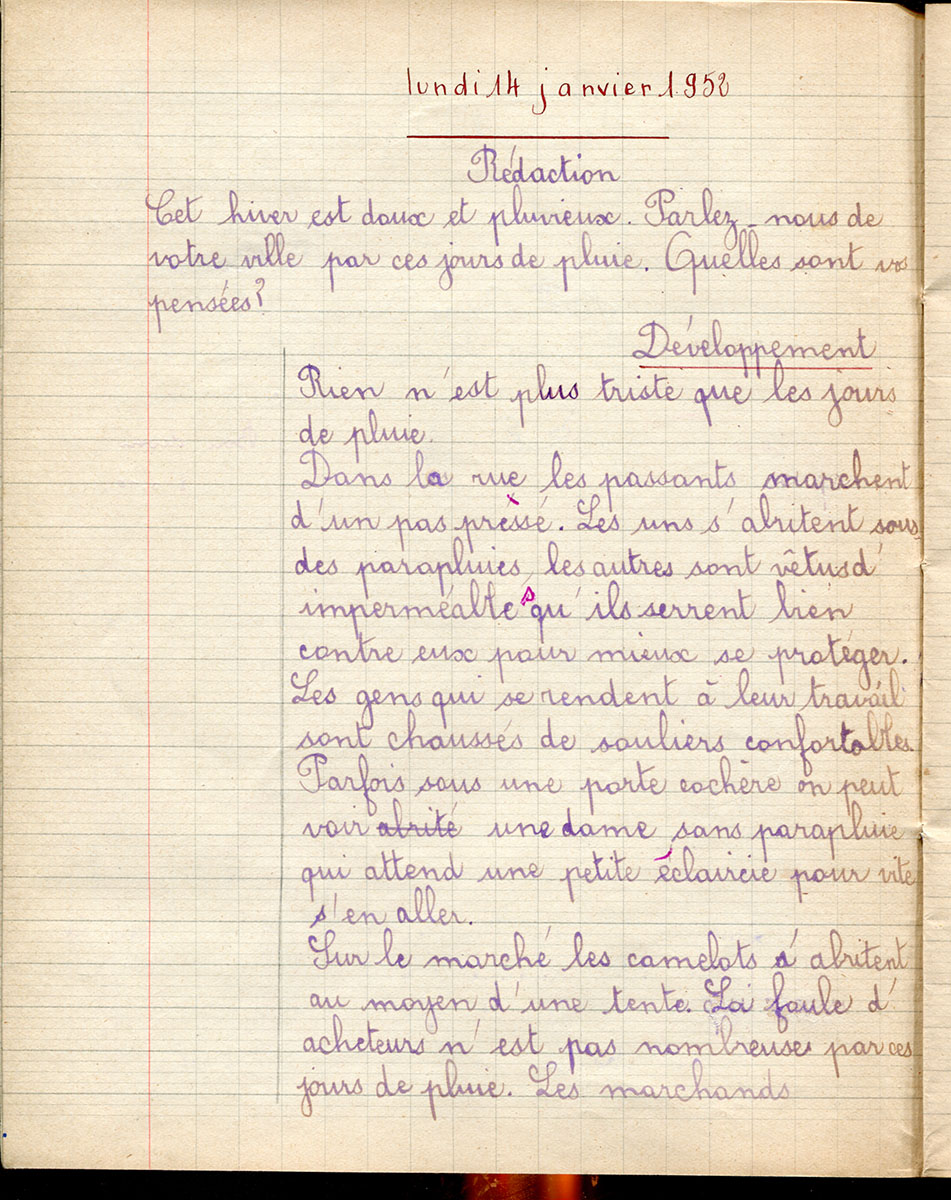 lundi 14 janvier 1952
Rédaction
Cet hiver est doux et pluvieux. Parlez-nous de
votre ville par ces jours de pluie. Quelles sont vos
pensées?
Développement
Rien n'est plus triste que les jours
de pluie.
Dans la rue les passants marchent
d'un pas pressé. Les uns s'abritent sous
des parapluies, les autres sont vêtus d'
imperméables qu'ils serrent bien
contre eux pour mieux se protéger.
Les gens qui se rendent à leur travail
sont chaussés de souliers confortables.
Parfois sous une porte cochère on peut
voir abrité une dame sans parapluie
qui attend une petite éclaircie pour vite
s'en aller.
Sur le marché les camelots s'abritent
au moyen d'une tente. La foule d'
acheteurs n'est pas nombreuse par ces
jours de pluie. Les marchands